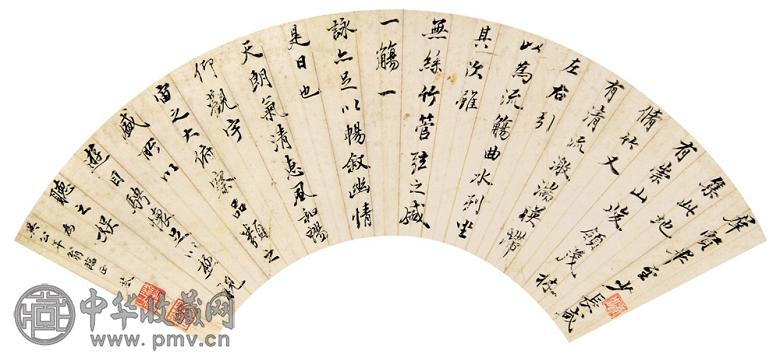 羣賢畢至少長咸
集此地
有崇山峻領茂林
脩竹又
有清流激湍暎帶
左右引
以為流觴曲水列坐
其次雖
無絲竹管弦之盛
一觴一
詠亦足以暢敘幽情
是日也
天朗氣清惠風和暢
仰觀宇
宙之大俯察品類之
盛所以
遊目騁懷足以極視
聽之娛
中华收藏网
www.pmv.cn